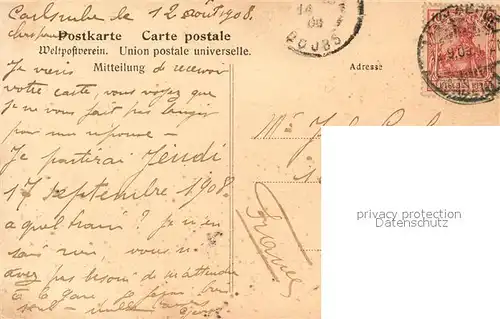 Carlsruhe le 12 août 1908.
Postkarte Carte postale
Weltpostverein. Union postale universelle.
Mitteilung
Adresse
Je viens de recevoir
votre carte, vous voyez que
je ne vous fait pas languir
pour ma reponse —
Je partirai Jeudi
17 septembre 1908.
a quel train? Je n'en
sais rien, vous n'
avez pas besoin de m'attendre
à la gare
seul
France
DOUBS
privacy protection
watermark